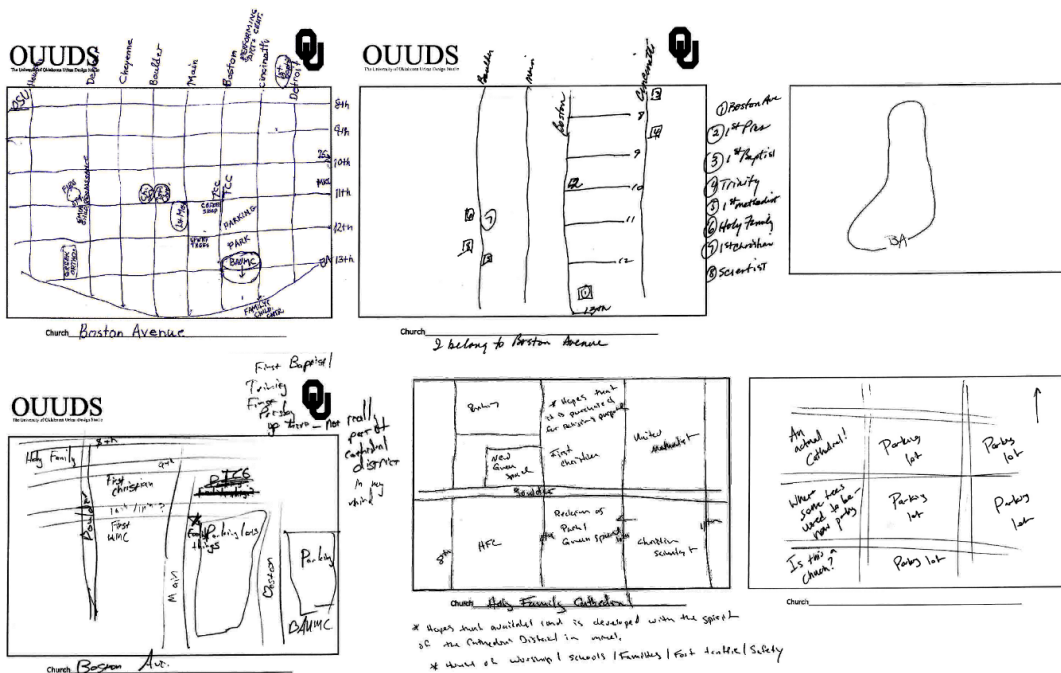 OUUDS
The University of Oklahoma Urban Design Studio
OU
Cheyenne
Boulder
Main
Boston
PERFORMING
ARTS CENT.
Cincinatti
Detroit
OSU
8th
9th
10th
11th
12th
13th
TCC
TCC
PARKING
PARK
BAUMC
GREEK
ORTHODOX
FAMILY
CHILD
CNTR.
Church Boston Avenue
OUUDS
The University of Oklahoma Urban Design Studio
OU
Boulder
Main
Boston
Cincinatti
3
8
4
9
2
10
11
12
13th
6
7
8
5
1
1 Boston Ave
2 1st Pres
3 1st Baptist
4 Trinity
5 1st methodist
6 Holy Family
7 1st Christian
8 Scientist
Church
I belong to Boston Avenue
BA
OUUDS
The University of Oklahoma Urban Design Studio
OU
First Baptist/
Trinity
First
Presby
go there - not really
part of
cathedral
district
in my
mind
Holy Family
8th
9th
First
Christian
First
UMC
Boulder
Main
TCC
Parking lots
things
Boston
Parking
BAUMC
Church Boston Ave.
Parking
* Hopes that
it is purchased
for parking purposes
New
Green
space
First
Christian
United
Methodist
Boulder
8th
HFC
Park/
Green space
Christian
Scientist
11th
Church Holy Family Cathedral
* Hopes that available land is developed with the spirit
of the Cathedral District in mind.
* Hours of worship / schools / Families / Foot traffic / Safety
An
actual
Cathedral!
Parking
lot
Parking
lot
Where
some trees
used to be -
now parking
Parking
lot
Parking
lot
Is this a
church?
Parking lot
Church